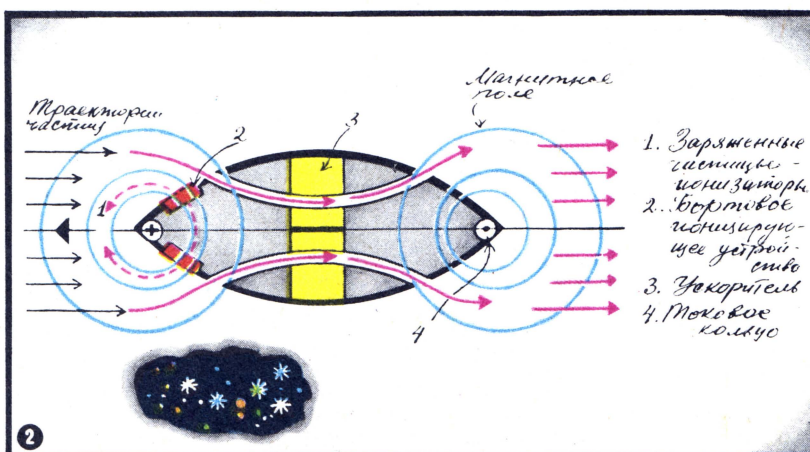 Траектории
частиц
2
3
Магнитное
поле
1
4
1. Заряженные
частицы-
ионизаторы
2. Бортовое
ионизирую-
щее устрой-
ство
3. Ускоритель
4. Токовое
кольцо
2